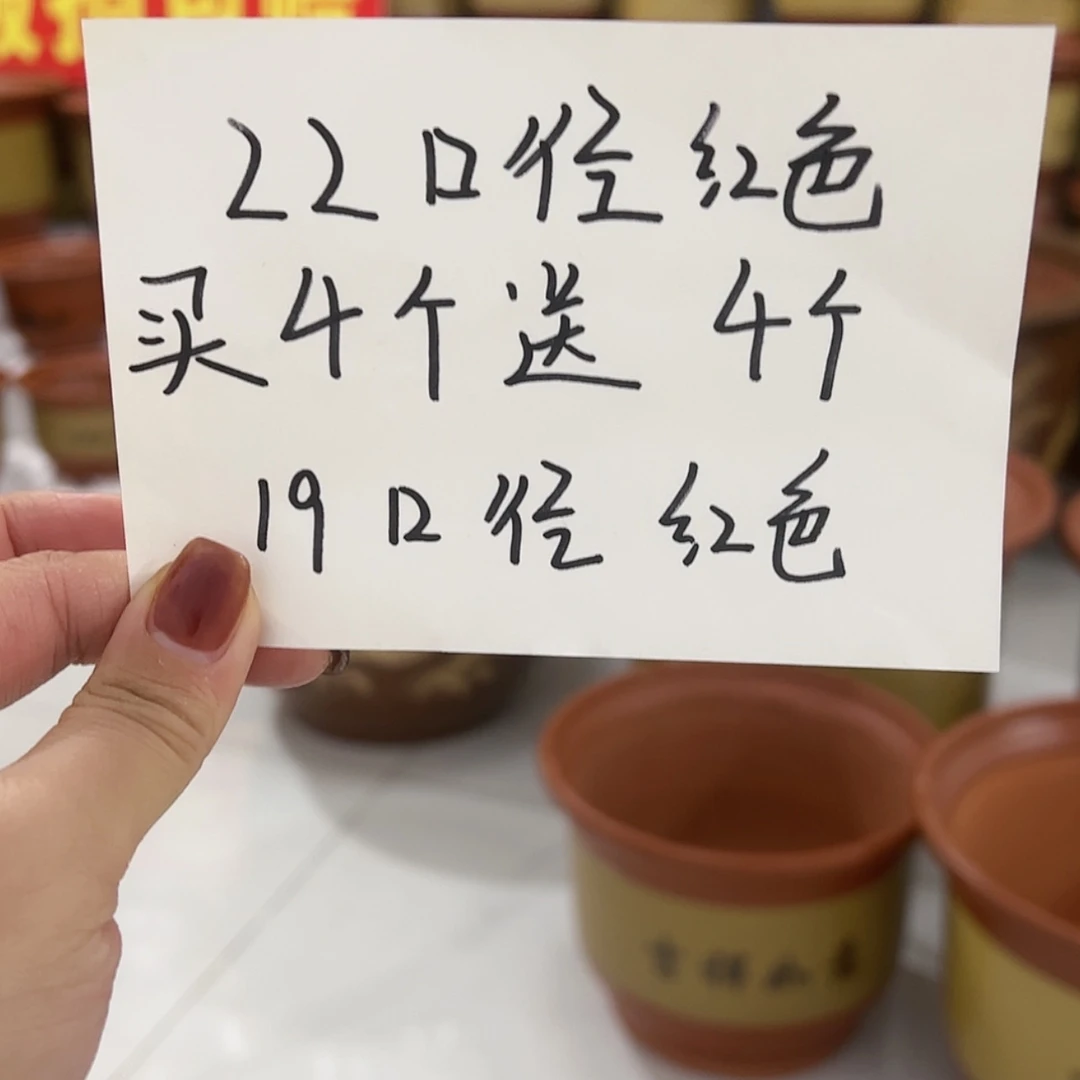 22口径 红色
买4个送 4个
19口径 红色
吉祥如意